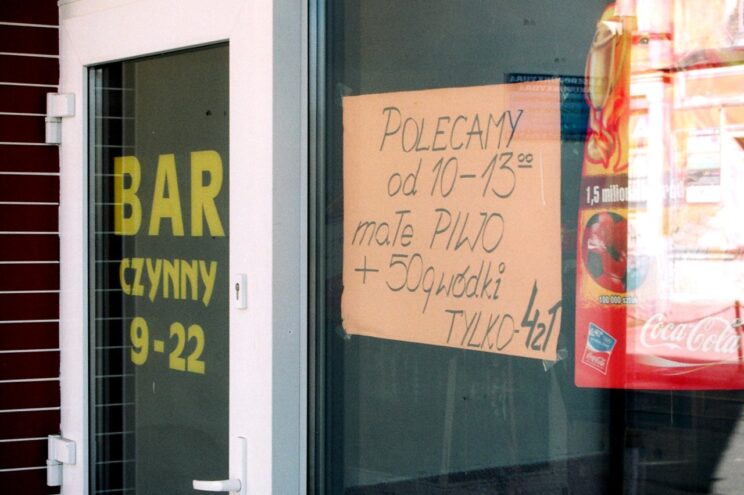 BAR
CZYNNY
9-22
POLECAMY
od 10-13⁰⁰
małe PIWO
+ 50g wódki
TYLKO-4zł
1,5 milion
100 000 sztuk
Coca-Cola